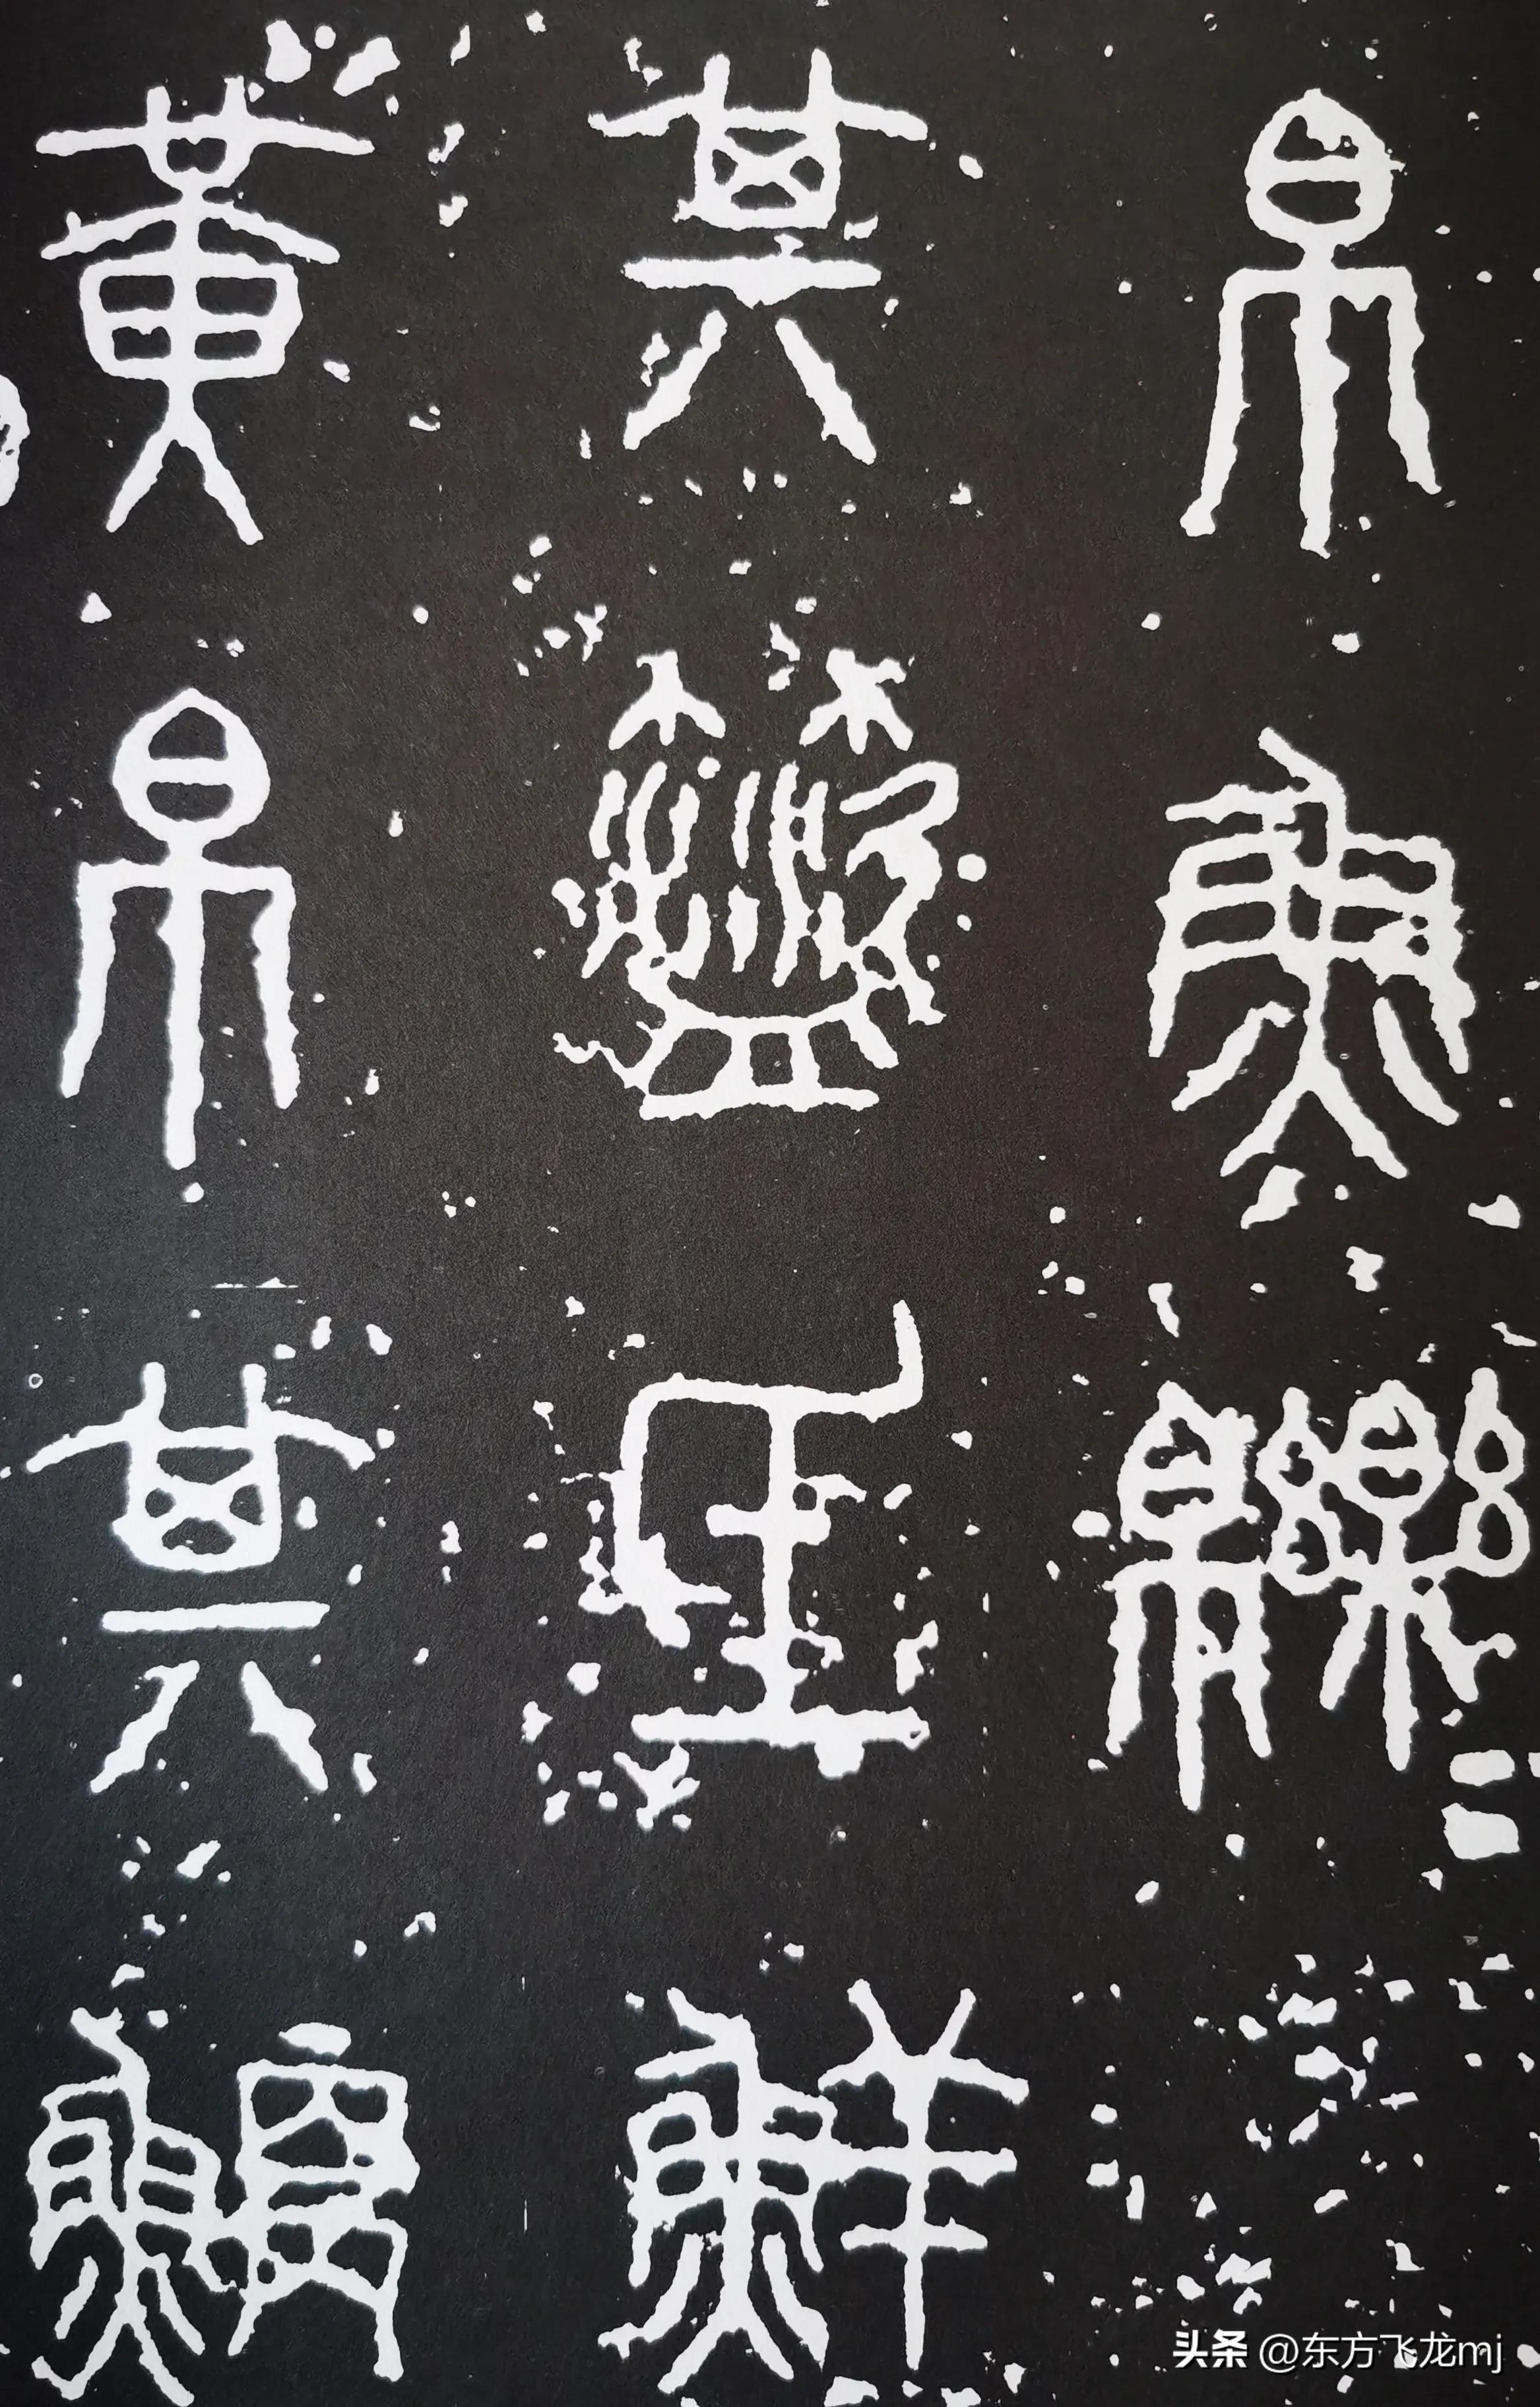 帛魚皪=
其盜氐鮮
黃帛其鯿
头条 @东方飞龙mj